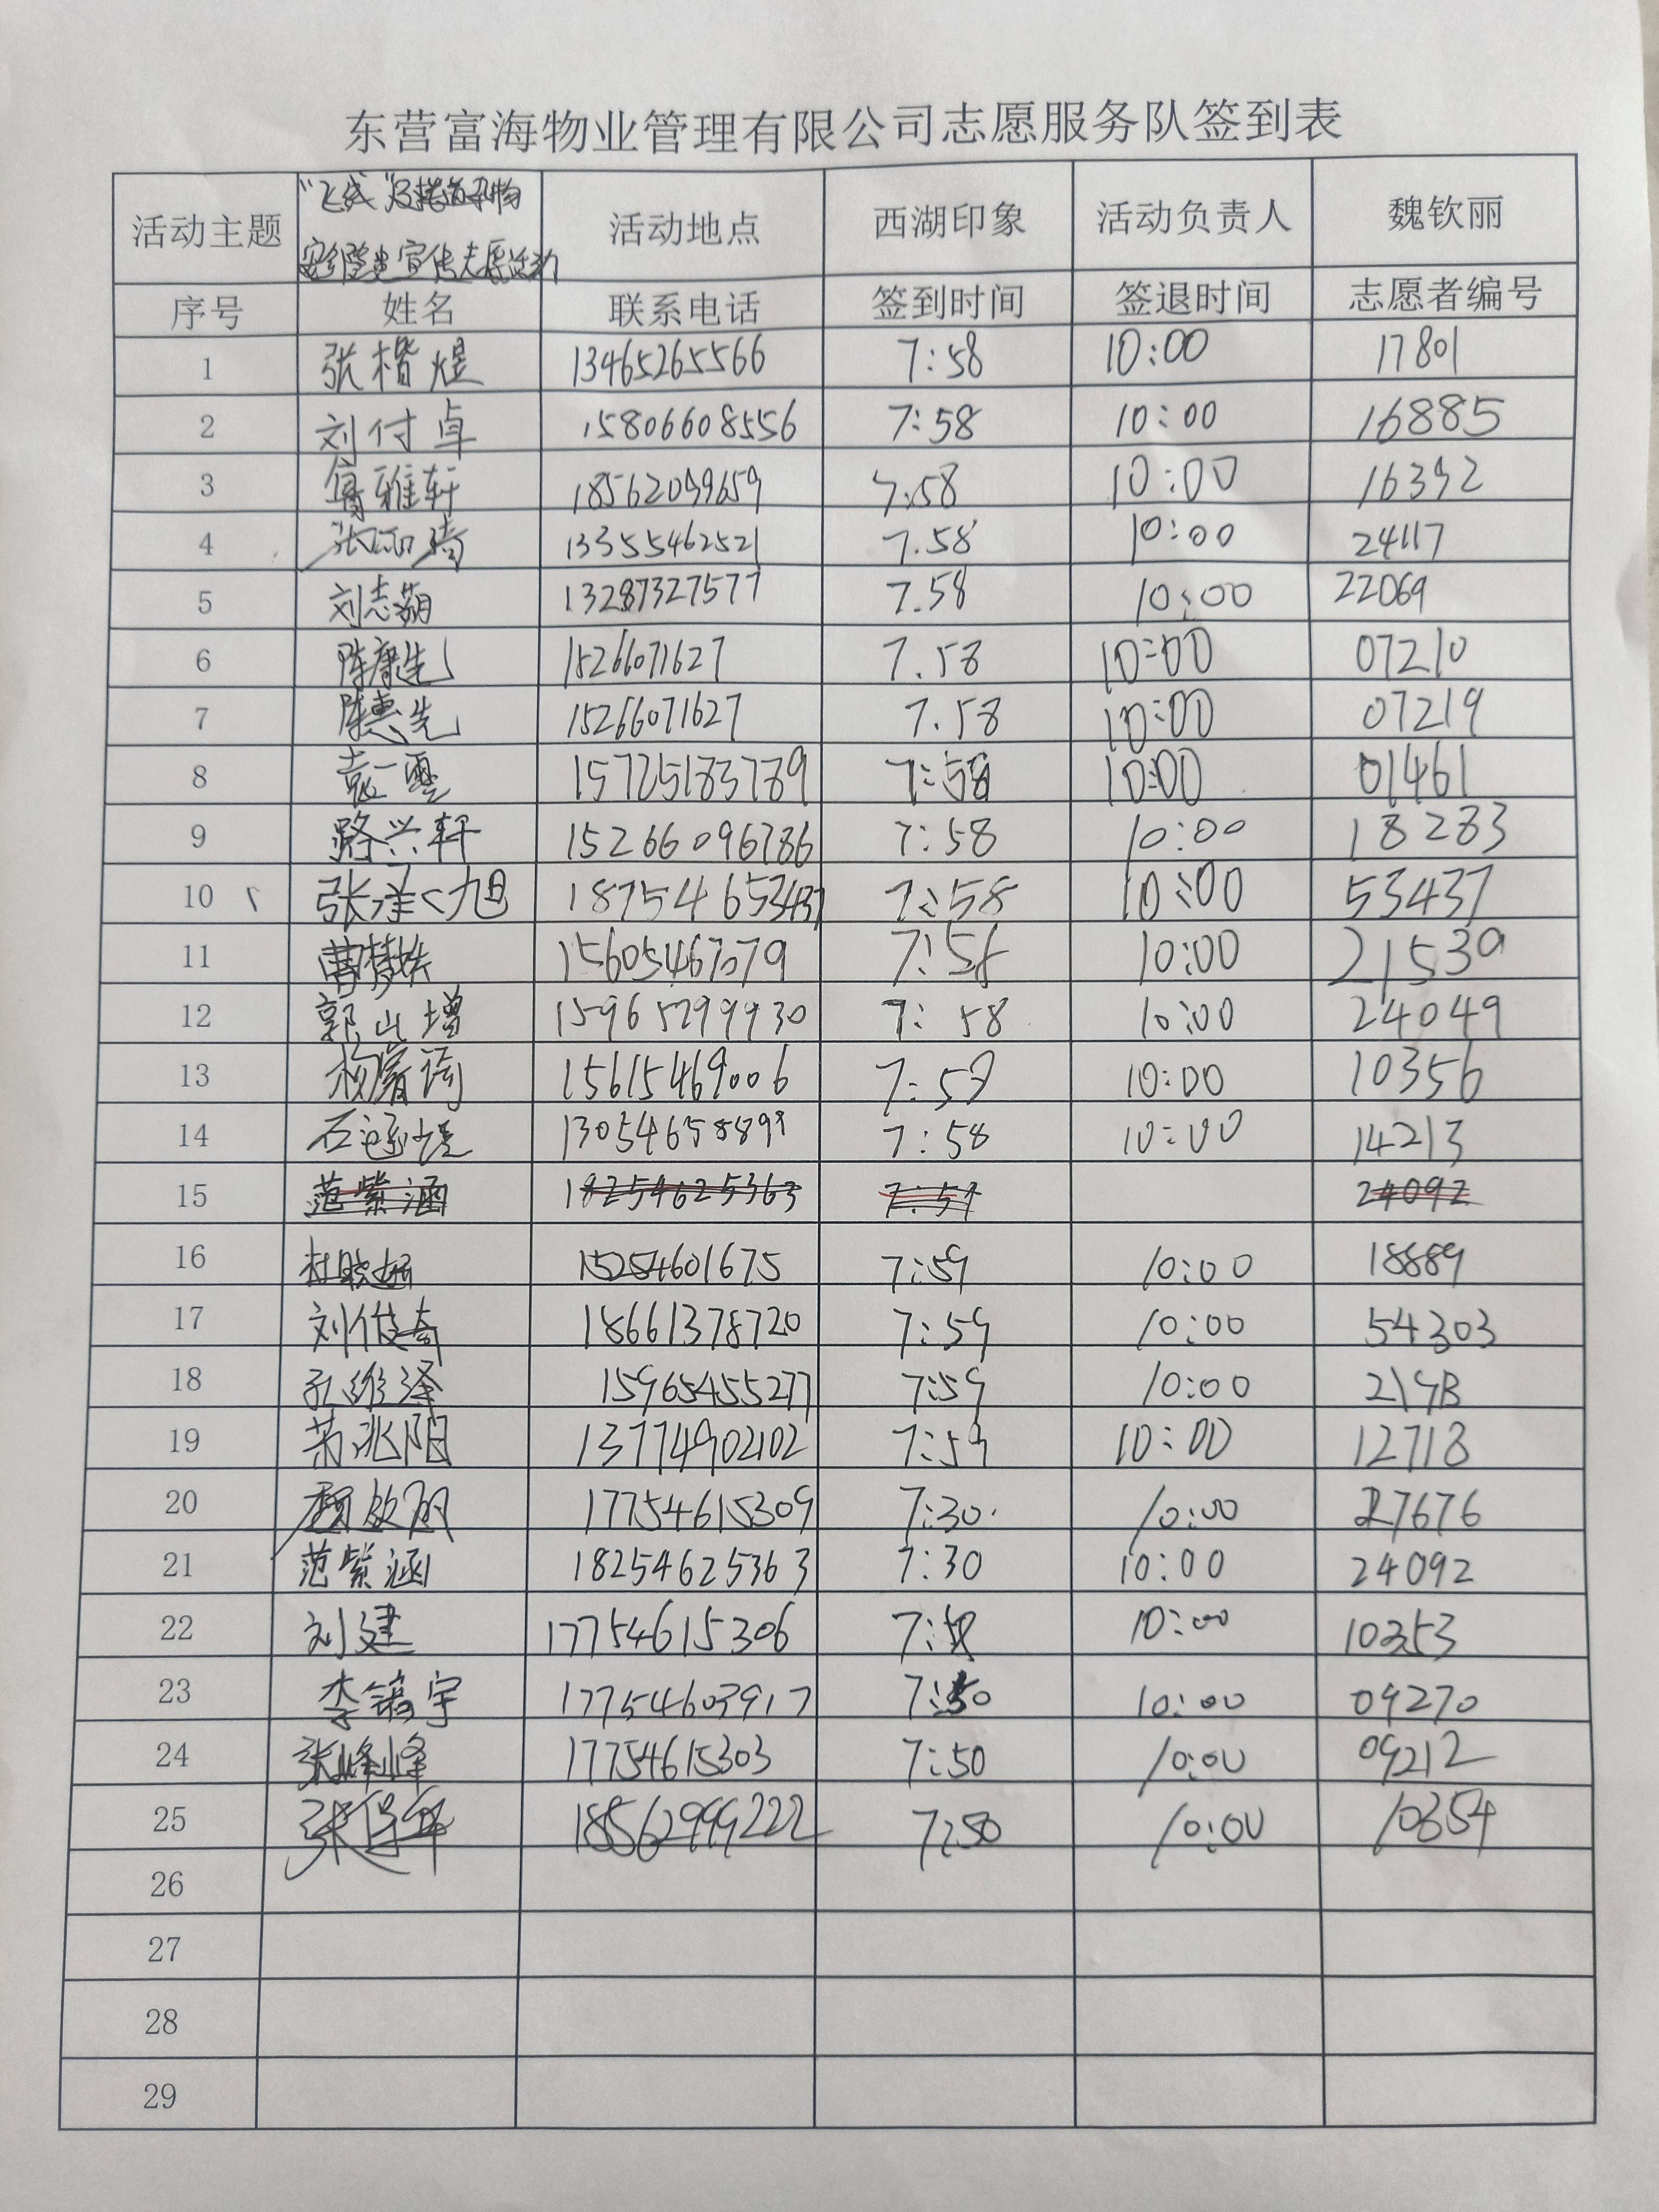 东营富海物业管理有限公司志愿服务队签到表
活动主题 "飞线"及楼道杂物安全隐患宣传志愿活动 活动地点 西湖印象 活动负责人 魏钦丽
序号 姓名 联系电话 签到时间 签退时间 志愿者编号
1 张楷煜 13465265566 7:58 10:00 17801
2 刘付卓 15806608556 7:58 10:00 16885
3 雅轩 18562099659 7:58 10:00 16392
4 张 13355462521 7.58 10:00 24117
5 刘志湖 13287327577 7.58 10:00 22069
6 陈康先 15266071627 7.58 10:00 07210
7 陈惠先 15266071627 7.58 10:00 07219
8 袁一 15725183789 7:58 10:00 01461
9 路兴轩 15266096786 7:58 10:00 18283
10 张 旭 18754653437 7:58 10:00 53437
11 曹梦 15605467079 7:58 10:00 21539
12 郭山增 15965299930 7:58 10:00 24049
13 杨 15615469006 7:59 10:00 10356
14 石 13054658899 7:58 10:00 14213
15 范紫涵 18254625363 7:57 24092
16 杜晓妍 15254601675 7:59 10:00 18889
17 刘俊奇 18661378720 7:59 10:00 54303
18 孔维泽 15965455277 7:59 10:00
19 兆阳 13774902102 7:59 10:00 12718
20 魏钦丽 17754615309 7:30 10:00 27676
21 范紫涵 18254625363 7:30 10:00 24092
22 刘建 17754615306 10:00 10353
23 李镐宇 17754603917 7:50 10:00 09270
24 张峰峰 17754615303 7:50 10:00 09212
25 张 18562999222 7:50 10:00 10354
26
27
28
29